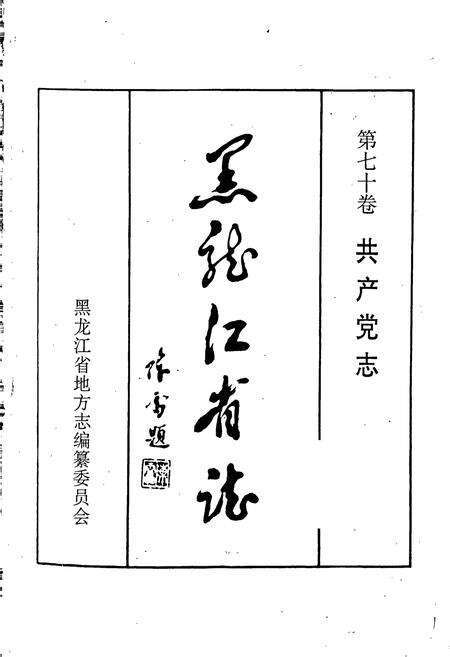 第七十卷 共产党志
黑龙江省志
题
黑龙江省地方志编纂委员会